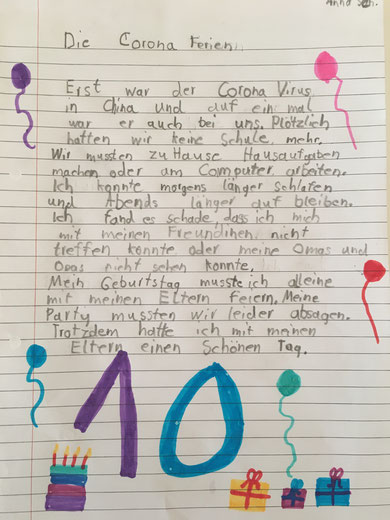 Anna Sch.
Die Corona Ferien
Erst war der Corona Virus
in China und auf ein mal
war er auch bei uns. Plötzlich
hatten wir keine Schule, mehr.
Wir mussten zu Hause Hausaufgaben
machen oder am Computer arbeiten.
Ich konnte morgens länger schlafen
und Abends länger auf bleiben.
Ich fand es schade, dass ich mich
mit meinen Freundinen nicht
treffen konnte oder meine Omas und
Opas nicht sehen konnte.
Mein Geburtstag musste ich alleine
mit meinen Eltern feiern. Meine
Party mussten wir leider absagen.
Trotzdem hatte ich mit meinen
Eltern einen Schönen Tag.
10